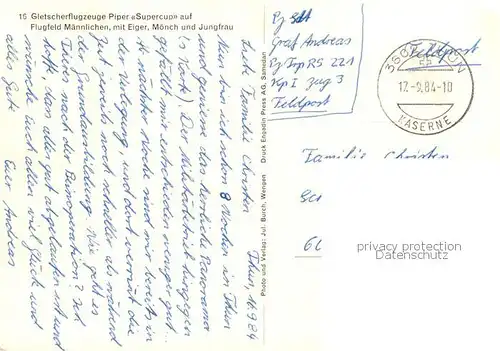 15 Gletscherflugzeuge Piper «Supercup» auf
Flugfeld Männlichen, mit Eiger, Mönch und Jungfrau
Thun, 16.9.84
Liebe Familie Christen
Nun bin ich schon 8 Wochen in Thun
und geniesse das herrliche Panorama
(s. Karte). Der Militärbetrieb hingegen
gefällt mir entschieden weniger gut.
nächster Woche sind wir bereits in
der Verlegung, und dort verrinnt die
Zeit jeweils noch schneller als während
der Grundausbildung. Wie geht es
nach der Operation? Ich
hoffe, dass alles gut abgelaufen ist und
wünsche euch allen viel Glück und
alles Gute
Euer Andreas
Photo und Verlag: Jul. Burch, Wengen Druck Engadin Press AG, Samedan
Graf Andreas
RS 221
Kp I Zug 3
Feldpost
Feldpost
3600 THUN
17.-9.84-18
KASERNE
Familie Christen
privacy protection
veryimportantlot.com